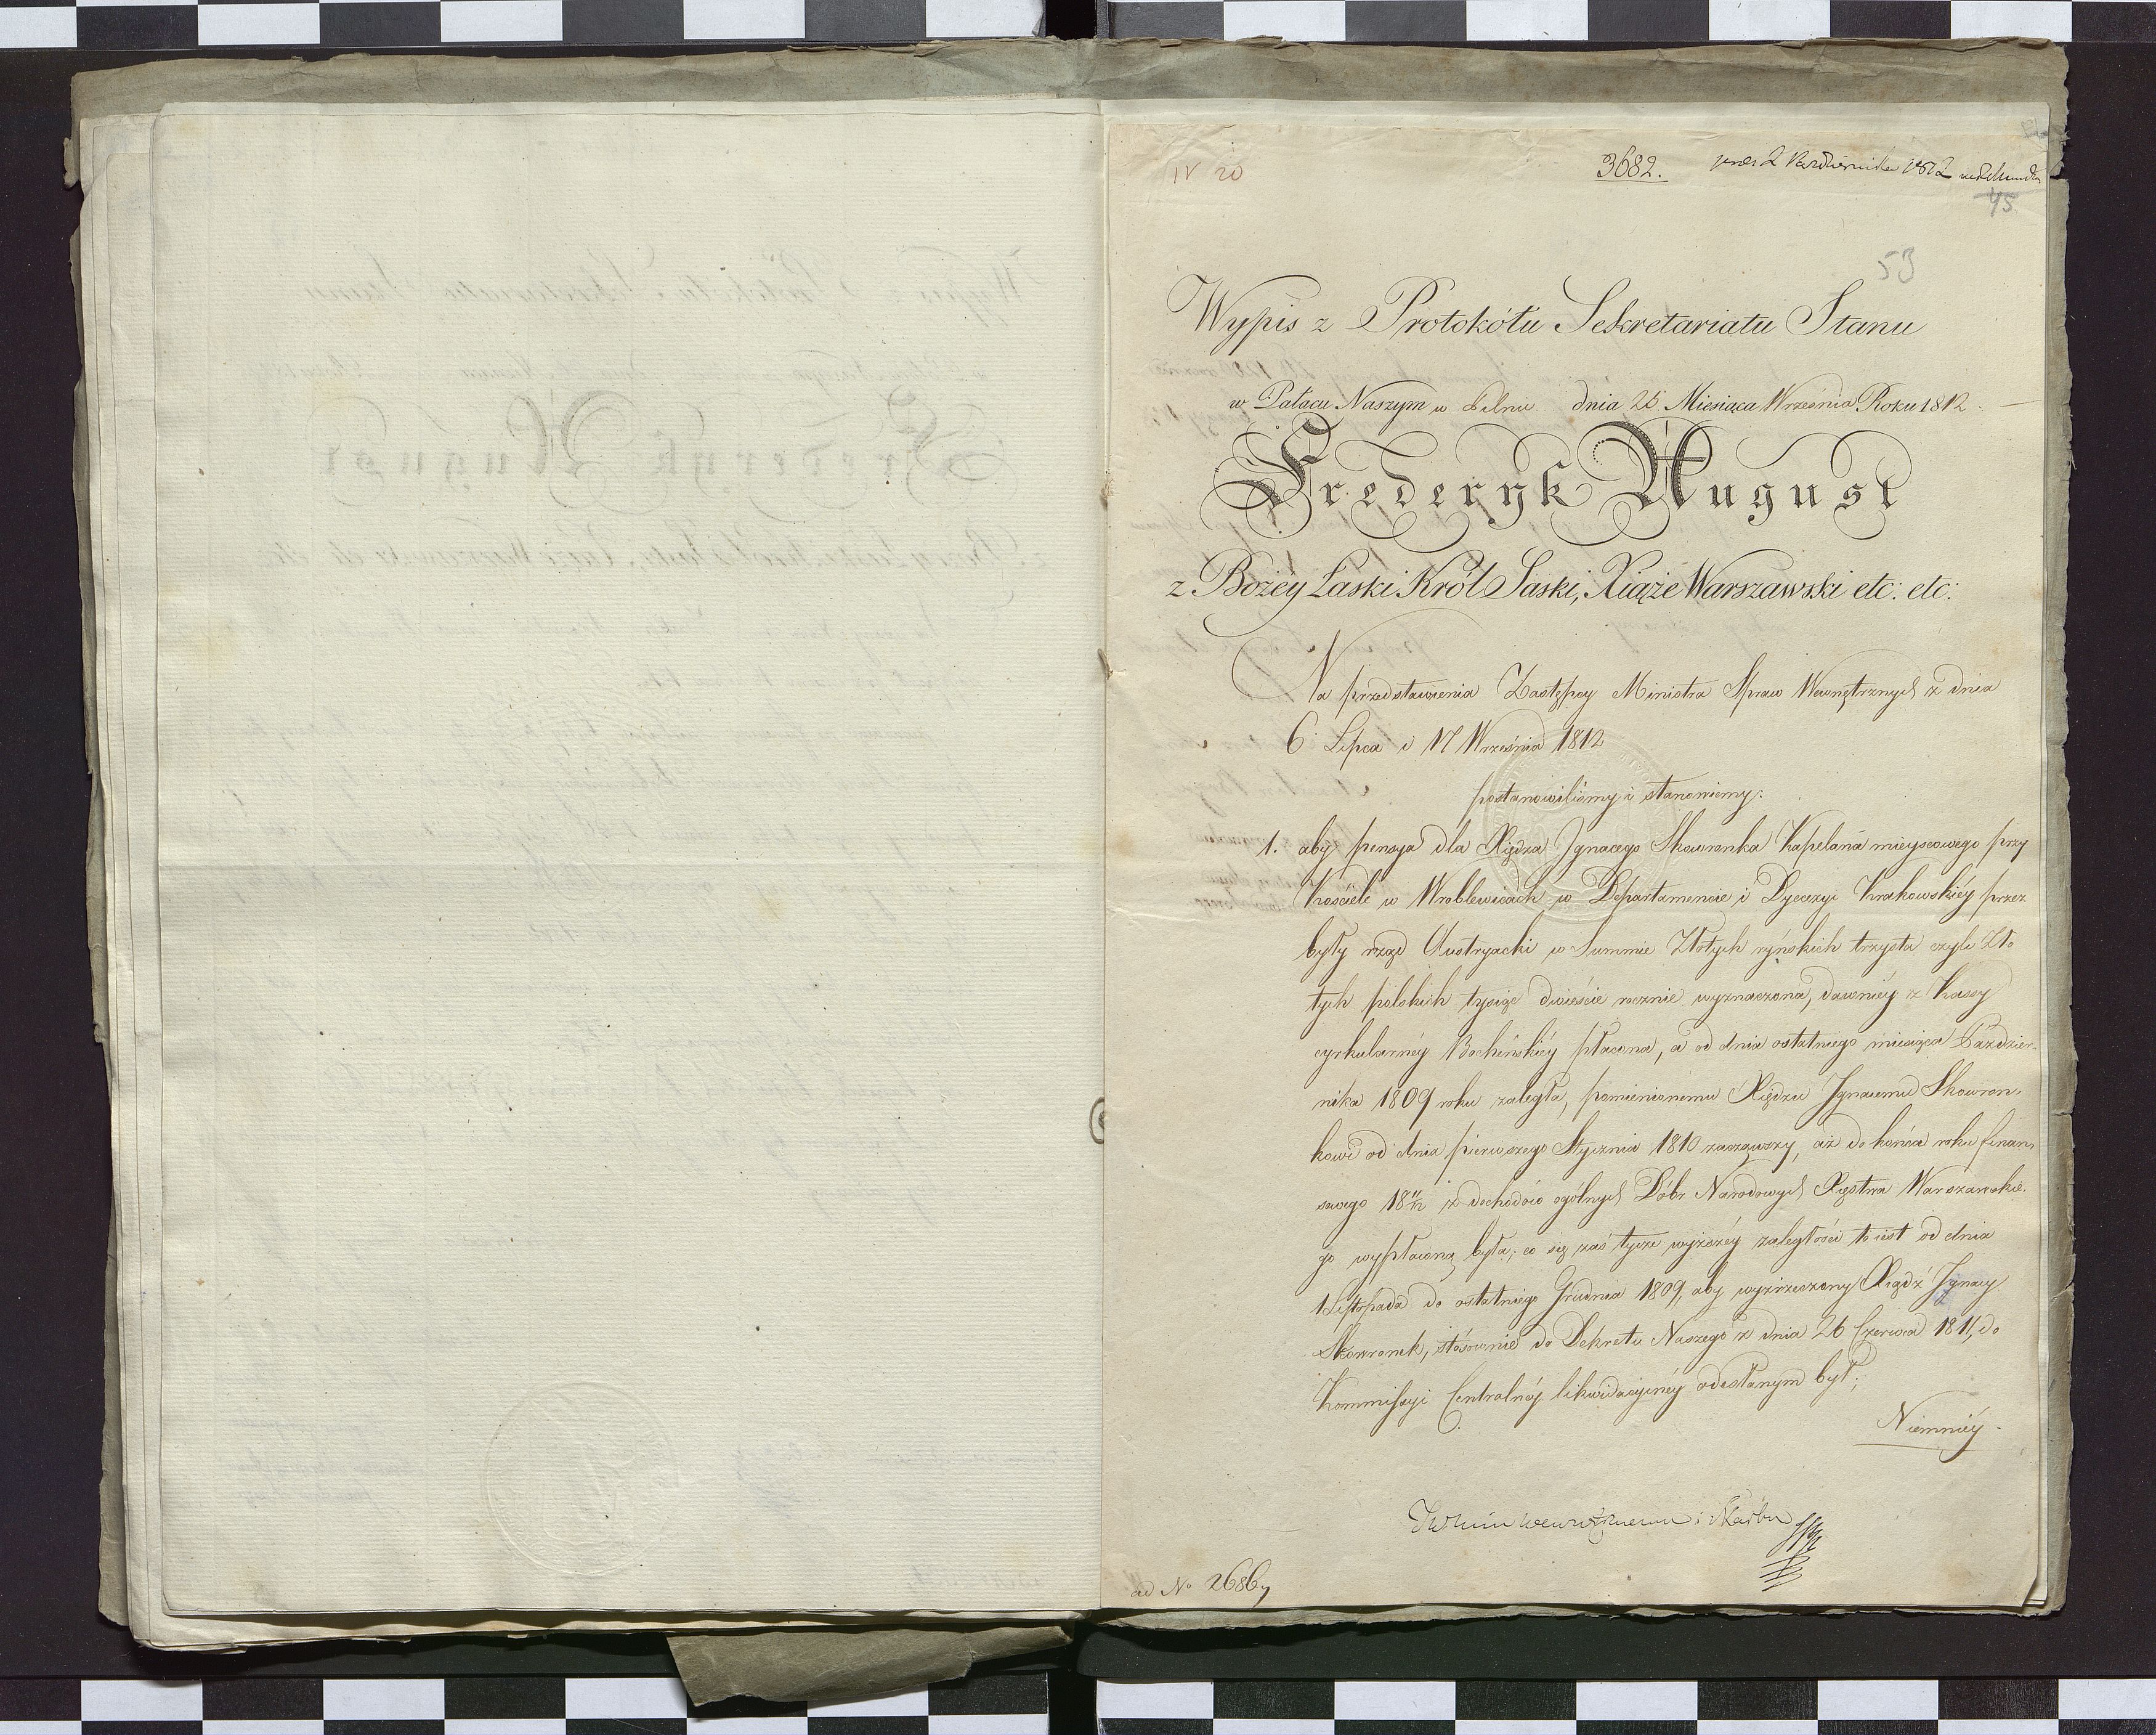 IV 20
3682.
2 Października 1812
45
53
Wypis z Protokółu Sekretariatu Stanu
w Pałacu Naszym w Pilnic dnia 25 Miesiąca Września Roku 1812
Frederyk August
z Bożéy Łaski Król Saski, Xiąże Warszawski etc: etc:
Na przedstawienia Zastępcy Ministra Spraw Wewnętrznych z dnia
6 Lipca i 17 Września 1812
postanowiliśmy i stanowiemy:
1. aby pensya dla Xiędza Jgnacego Skowronka Kapelana mieyscowego przy
Kościele w Wroblewicach w Departamencie i Dyecezyi Krakowskiéy przez
były rząd Austryacki w Summie Złotych ryńskich trzysta czyli Zło
tych polskich tysiąc dwieście rocznie wyznaczona, dawniéy z Kassy
cyrkularnéy Bocheńskiéy płacona, a od dnia ostatniego miesiąca Paździer-
nika 1809 roku zaległa, pomienionemu Xiędzu Jgnacemu Skowron-
kowi od dnia pierwszego Stycznia 1810 zacząwszy, aż do końca roku finan-
sowego 18 11/12 z dochodów ogólnych Dóbr Narodowych Xięstwa Warszawskie-
go wypłaconą była; co się zaś tycze wyższéy zaległości to iest od dnia
1 Listopada do ostatniego Grudnia 1809, aby wyżrzeczony Xiądz Jgnacy
Skowronek, stósownie do Dekretu Naszego z dnia 26 Czerwca 1811, do
Kommissyi Centralnéy likwidacyinéy odesłanym był;
Niemniéy-
wewnętrznemu i Skarbu
ad No 2686